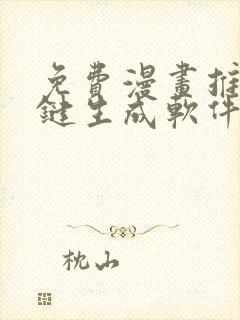 免費漫畫推
鍵生成軟件
枕山